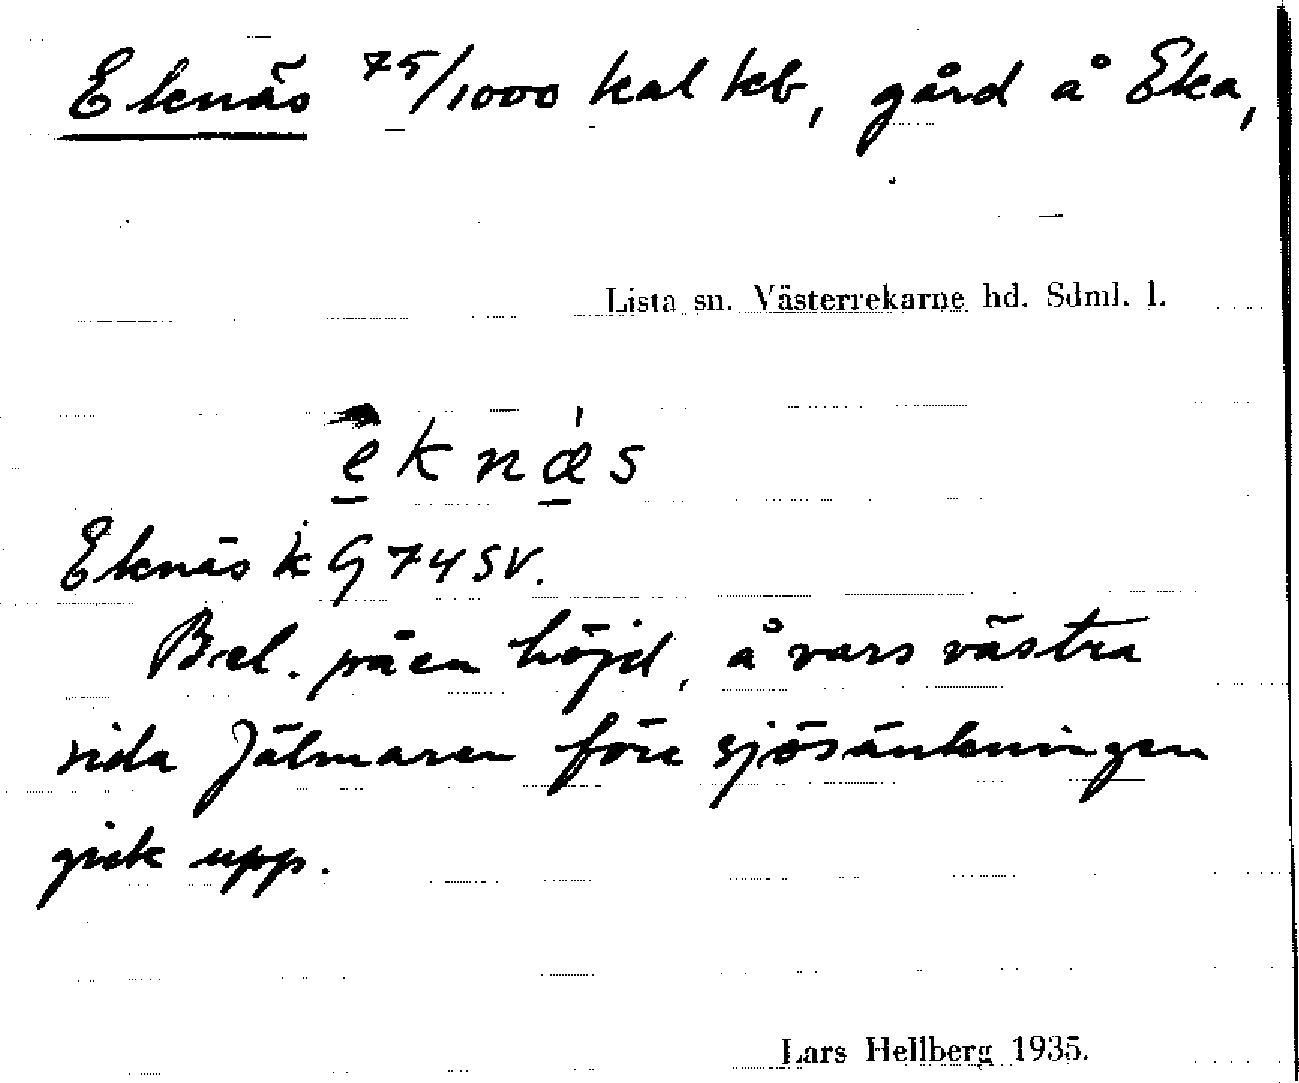 Eknäs 75/1000 kal kb, gård å Eka,
Lista sn. Västerrekarne hd. Sdml. l.
èknǽs
Eknäs k G 74 SV.
Bel. på en höjd, å vars västra
sida Jälmaren före sjösänkningen
gick upp.
Lars Hellberg 1935.